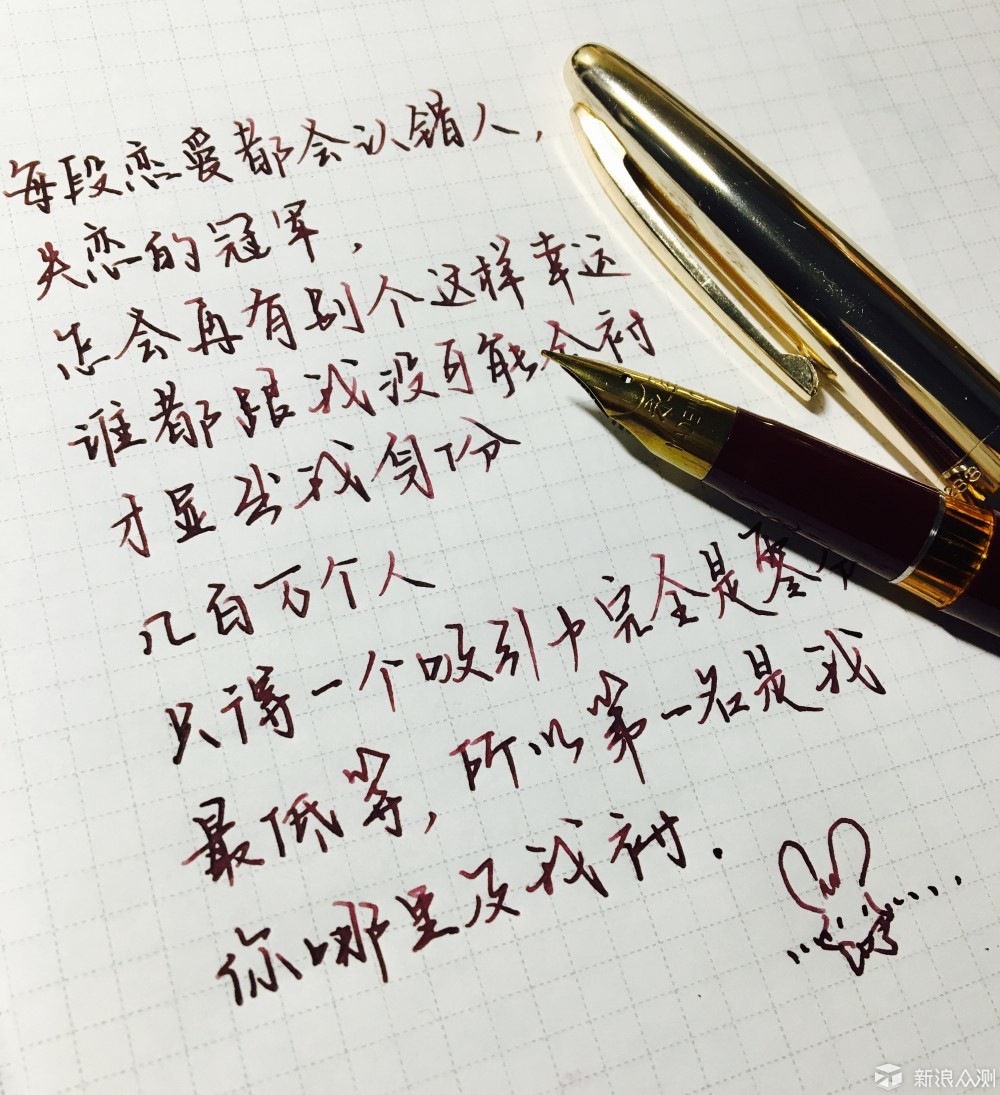 每段恋爱都会认错人,
失恋的冠军,
怎会再有别个这样幸运
谁都跟我没可能合衬
才显出我身份
几百万个人
只得一个吸引中完全是零分
最低等,所以第一名是我
你哪里及我衬.
新浪众测